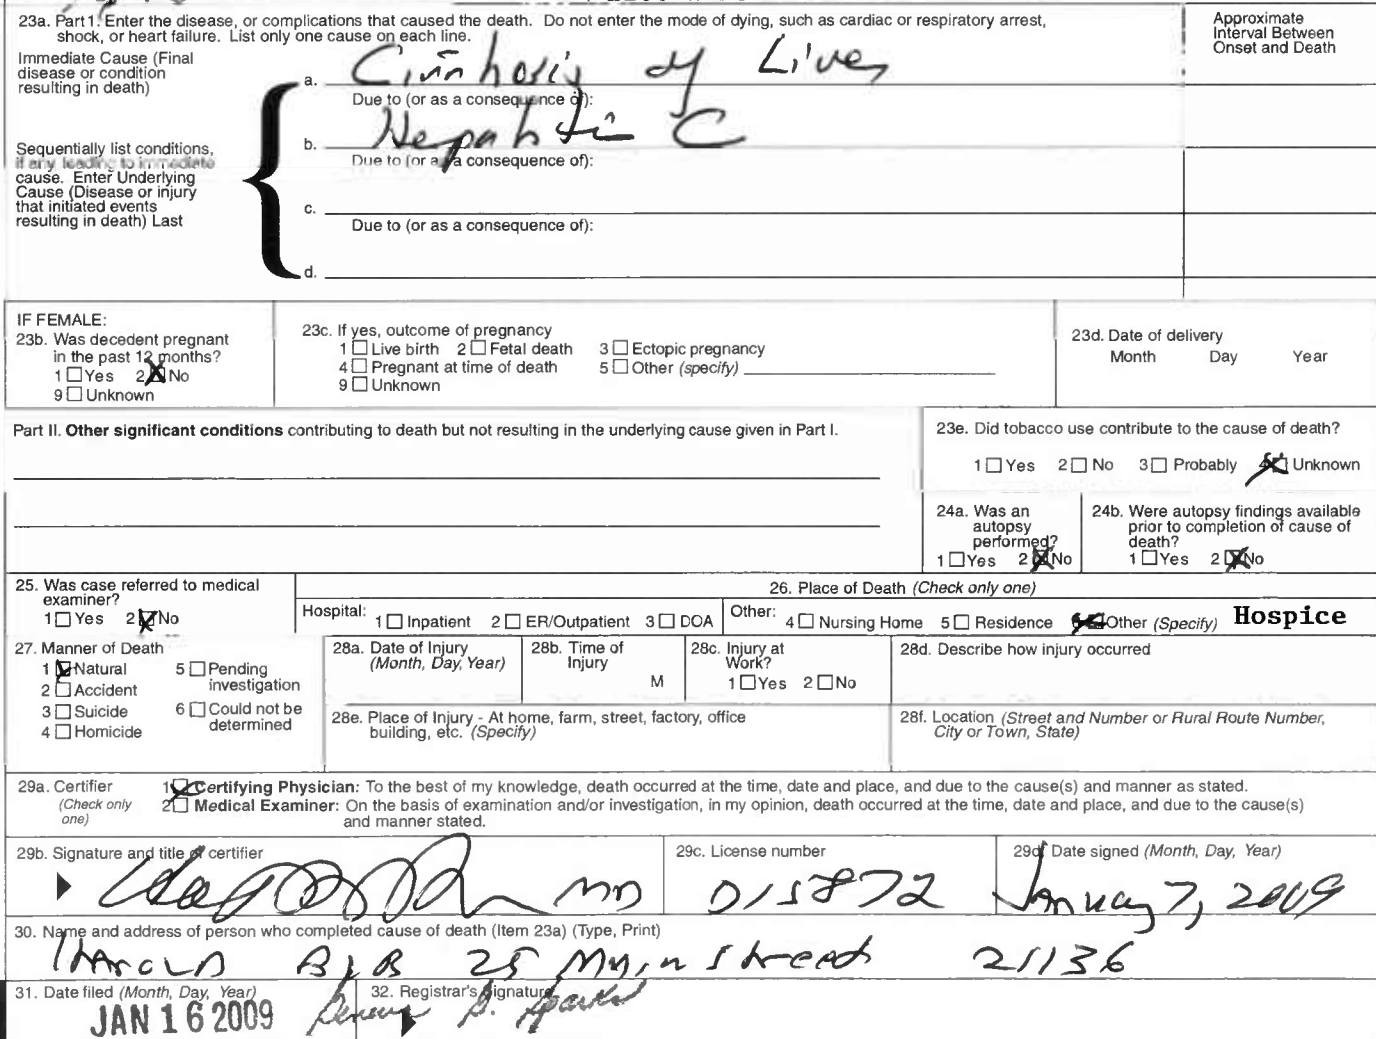 23a. Part 1. Enter the disease, or complications that caused the death. Do not enter the mode of dying, such as cardiac or respiratory arrest,
shock, or heart failure. List only one cause on each line.
Approximate
Interval Between
Onset and Death
Immediate Cause (Final
disease or condition
resulting in death)
a. Cirrhosis of Liver
Due to (or as a consequence of):
Sequentially list conditions,
if any leading to immediate
cause. Enter Underlying
Cause (Disease or injury
that initiated events
resulting in death) Last
b. Hepatitis C
Due to (or as a consequence of):
c.
Due to (or as a consequence of):
d.
IF FEMALE:
23b. Was decedent pregnant
in the past 12 months?
1 ☐ Yes 2 ☒ No
9 ☐ Unknown
23c. If yes, outcome of pregnancy
1 ☐ Live birth 2 ☐ Fetal death 3 ☐ Ectopic pregnancy
4 ☐ Pregnant at time of death 5 ☐ Other (specify)
9 ☐ Unknown
23d. Date of delivery
Month Day Year
Part II. Other significant conditions contributing to death but not resulting in the underlying cause given in Part I.
23e. Did tobacco use contribute to the cause of death?
1 ☐ Yes 2 ☐ No 3 ☐ Probably ☒ Unknown
24a. Was an
autopsy
performed?
1 ☐ Yes 2 ☒ No
24b. Were autopsy findings available
prior to completion of cause of
death?
1 ☐ Yes 2 ☒ No
25. Was case referred to medical
examiner?
1 ☐ Yes 2 ☒ No
26. Place of Death (Check only one)
Hospital: 1 ☐ Inpatient 2 ☐ ER/Outpatient 3 ☐ DOA Other: 4 ☐ Nursing Home 5 ☐ Residence ☒ Other (Specify) Hospice
27. Manner of Death
1 ☒ Natural 5 ☐ Pending
investigation
2 ☐ Accident
3 ☐ Suicide 6 ☐ Could not be
determined
4 ☐ Homicide
28a. Date of Injury
(Month, Day, Year)
28b. Time of
Injury
M
28c. Injury at
Work?
1 ☐ Yes 2 ☐ No
28d. Describe how injury occurred
28e. Place of Injury - At home, farm, street, factory, office
building, etc. (Specify)
28f. Location (Street and Number or Rural Route Number,
City or Town, State)
29a. Certifier
(Check only
one)
1 ☒ Certifying Physician: To the best of my knowledge, death occurred at the time, date and place, and due to the cause(s) and manner as stated.
2 ☐ Medical Examiner: On the basis of examination and/or investigation, in my opinion, death occurred at the time, date and place, and due to the cause(s)
and manner stated.
29b. Signature and title of certifier
MD
29c. License number
D15872
29d. Date signed (Month, Day, Year)
January 7, 2009
30. Name and address of person who completed cause of death (Item 23a) (Type, Print)
Harold Bob 25 Main Street 21136
31. Date filed (Month, Day, Year)
JAN 16 2009
32. Registrar's Signature
B. Sparks